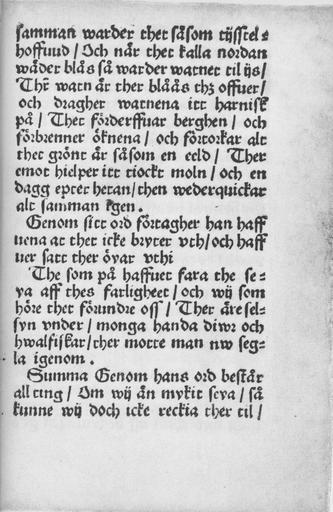 samman warder thet såsom tijstel-
hoffuud / Och när thet kalla nordan
wäder blås så warder watnet til ijs /
Thr̃ watn är ther blåås thz offuer /
och dragher watnena itt harnisk
på / Thet förderffuar berghen / och
förbrenner öknena / och förtorkar alt
thet grönt är såsom en eeld / Ther
emot hielper itt tiockt moln / och en
dagg epter hetan / then wederquickar
alt samman igen.
Genom sitt ord förtagher han haff
uena at thet icke bryter vth / och haff
uer satt ther övar vthi
The som på haffuet fara the se-
ya aff thes farligheet / och wij som
höre thet förundre oss / Ther äre sel-
syn vnder / monga handa diwr och
hwalfiskar / ther motte man nw seg-
la igenom.
Summa Genom hans ord består
all ting / Om wij än mykit seya / så
kunne wij doch icke reckia ther til /